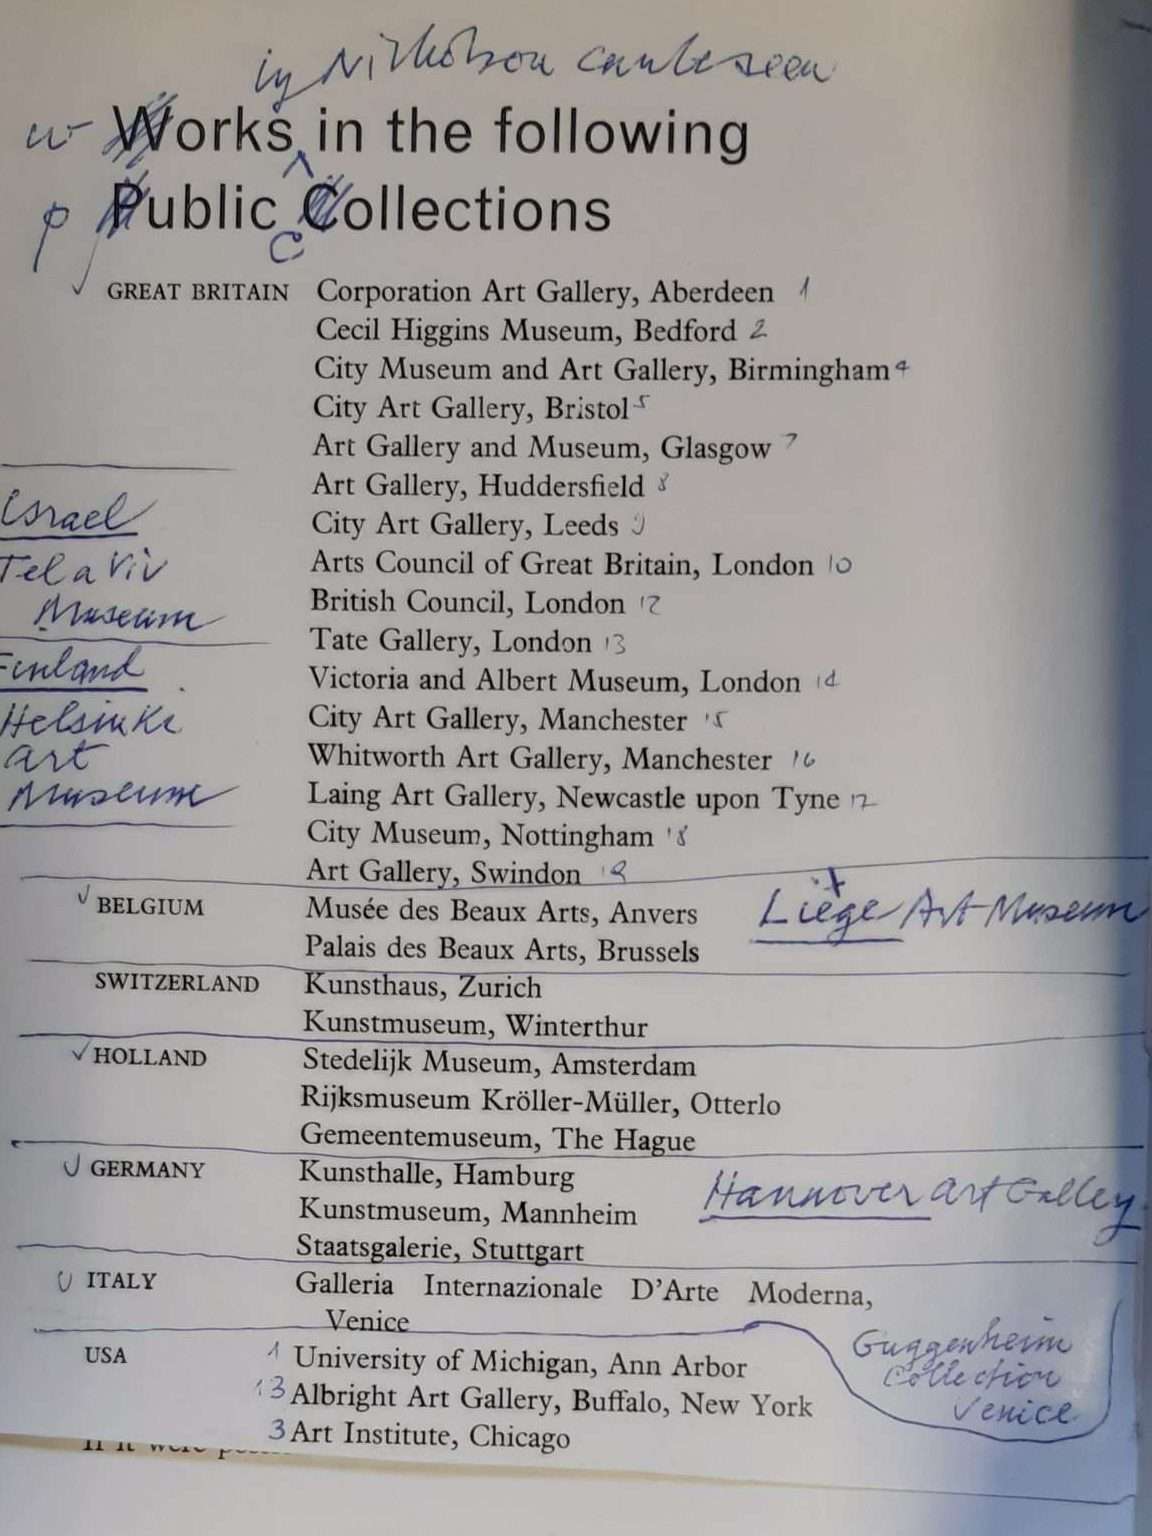 by Nicholson can be seen
w Works in the following
p Public C Collections
GREAT BRITAIN Corporation Art Gallery, Aberdeen 1
Cecil Higgins Museum, Bedford 2
City Museum and Art Gallery, Birmingham 4
City Art Gallery, Bristol 5
Art Gallery and Museum, Glasgow 7
Art Gallery, Huddersfield 8
Israel City Art Gallery, Leeds 9
Tel aviv Arts Council of Great Britain, London 10
Museum British Council, London 12
Tate Gallery, London 13
Finland Victoria and Albert Museum, London 14
Helsinki City Art Gallery, Manchester 15
art Whitworth Art Gallery, Manchester 16
Museum Laing Art Gallery, Newcastle upon Tyne 17
City Museum, Nottingham 18
Art Gallery, Swindon 19
BELGIUM Musée des Beaux Arts, Anvers Liège Art Museum
Palais des Beaux Arts, Brussels
SWITZERLAND Kunsthaus, Zurich
Kunstmuseum, Winterthur
HOLLAND Stedelijk Museum, Amsterdam
Rijksmuseum Kröller-Müller, Otterlo
Gemeentemuseum, The Hague
GERMANY Kunsthalle, Hamburg Hannover art Galley
Kunstmuseum, Mannheim
Staatsgalerie, Stuttgart
ITALY Galleria Internazionale D'Arte Moderna,
Venice Guggenheim
Collection
Venice
USA 1 University of Michigan, Ann Arbor
13 Albright Art Gallery, Buffalo, New York
3 Art Institute, Chicago